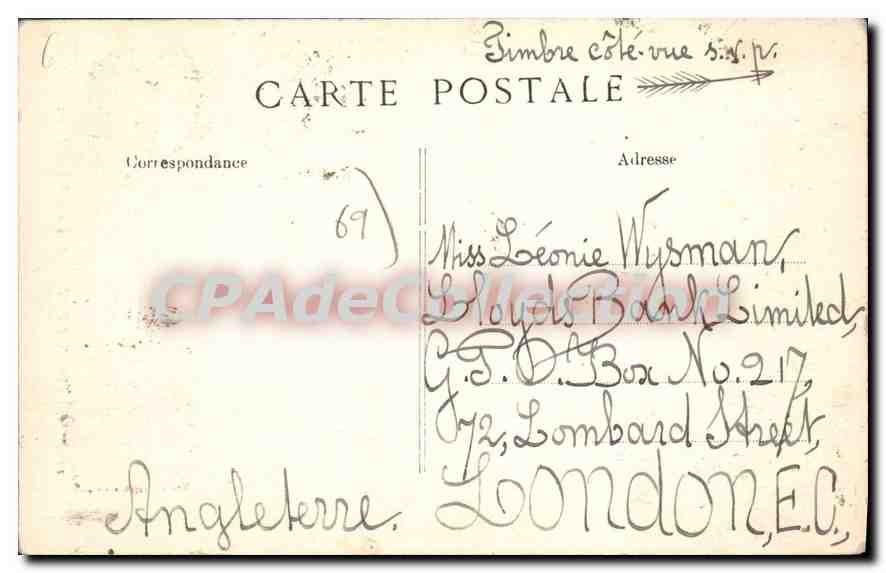 Timbre côté vue s.v.p.
CARTE POSTALE
Correspondance
Adresse
69
Miss Léonie Wysman,
Lloyds Bank Limited,
G.P.O. Box No. 217,
72, Lombard Street,
LONDON, E.C.,
Angleterre.
CPAdeCollection